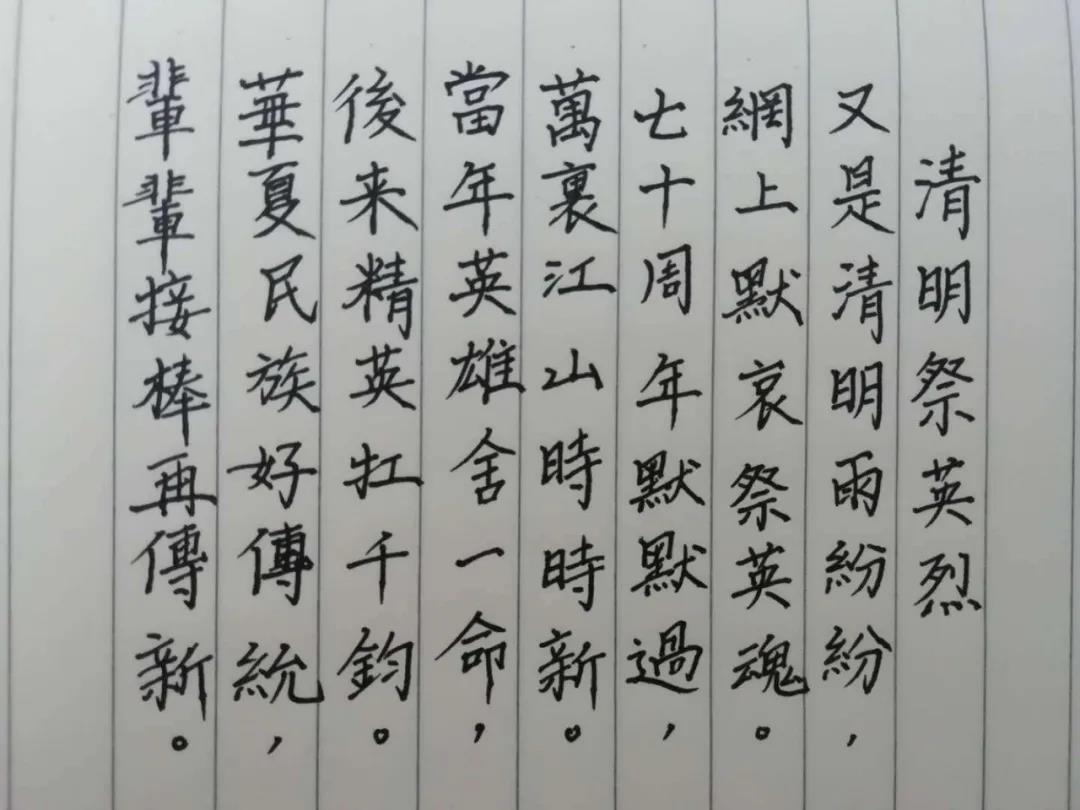 清明祭英烈
又是清明雨紛紛，
網上默哀祭英魂。
七十周年默默過，
萬裏江山時時新。
當年英雄舍一命，
後来精英扛千鈞。
華夏民族好傳統，
輩輩接棒再傳新。